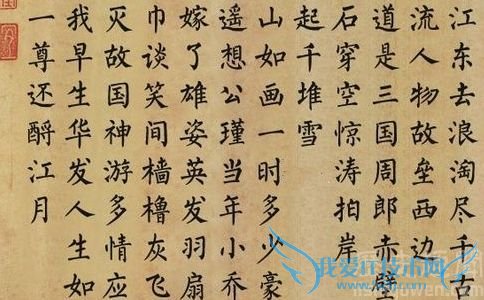 江东去浪淘尽千古
流人物故垒西边
道是三国周郎赤壁
石穿空惊涛拍岸
起千堆雪
山如画一时多少豪
遥想公瑾当年小乔
嫁了雄姿英发羽扇
巾谈笑间樯橹灰飞
灭故国神游多情应
我早生华发人生如
一尊还酹江月
我爱IT技术网